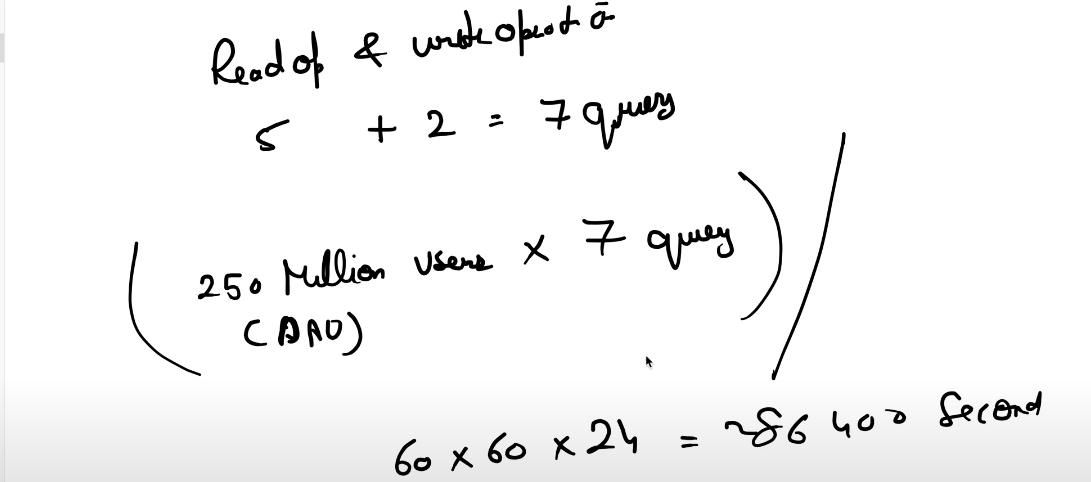 Read op & write operatō
5 + 2 = 7 query
(250 Million users × 7 query) /
(DAU)
60 × 60 × 24 = ~86 400 Second